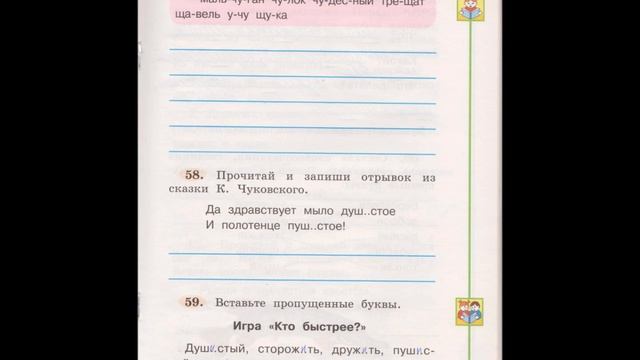 маль-чу-ган чу-лок чу-дес-ный тре-щат
ща-вель у-чу щу-ка
58. Прочитай и запиши отрывок из
сказки К. Чуковского.
Да здравствует мыло душ..стое
И полотенце пуш..стое!
59. Вставьте пропущенные буквы.
Игра «Кто быстрее?»
Души.стый, сторожить, дружить, пушис-